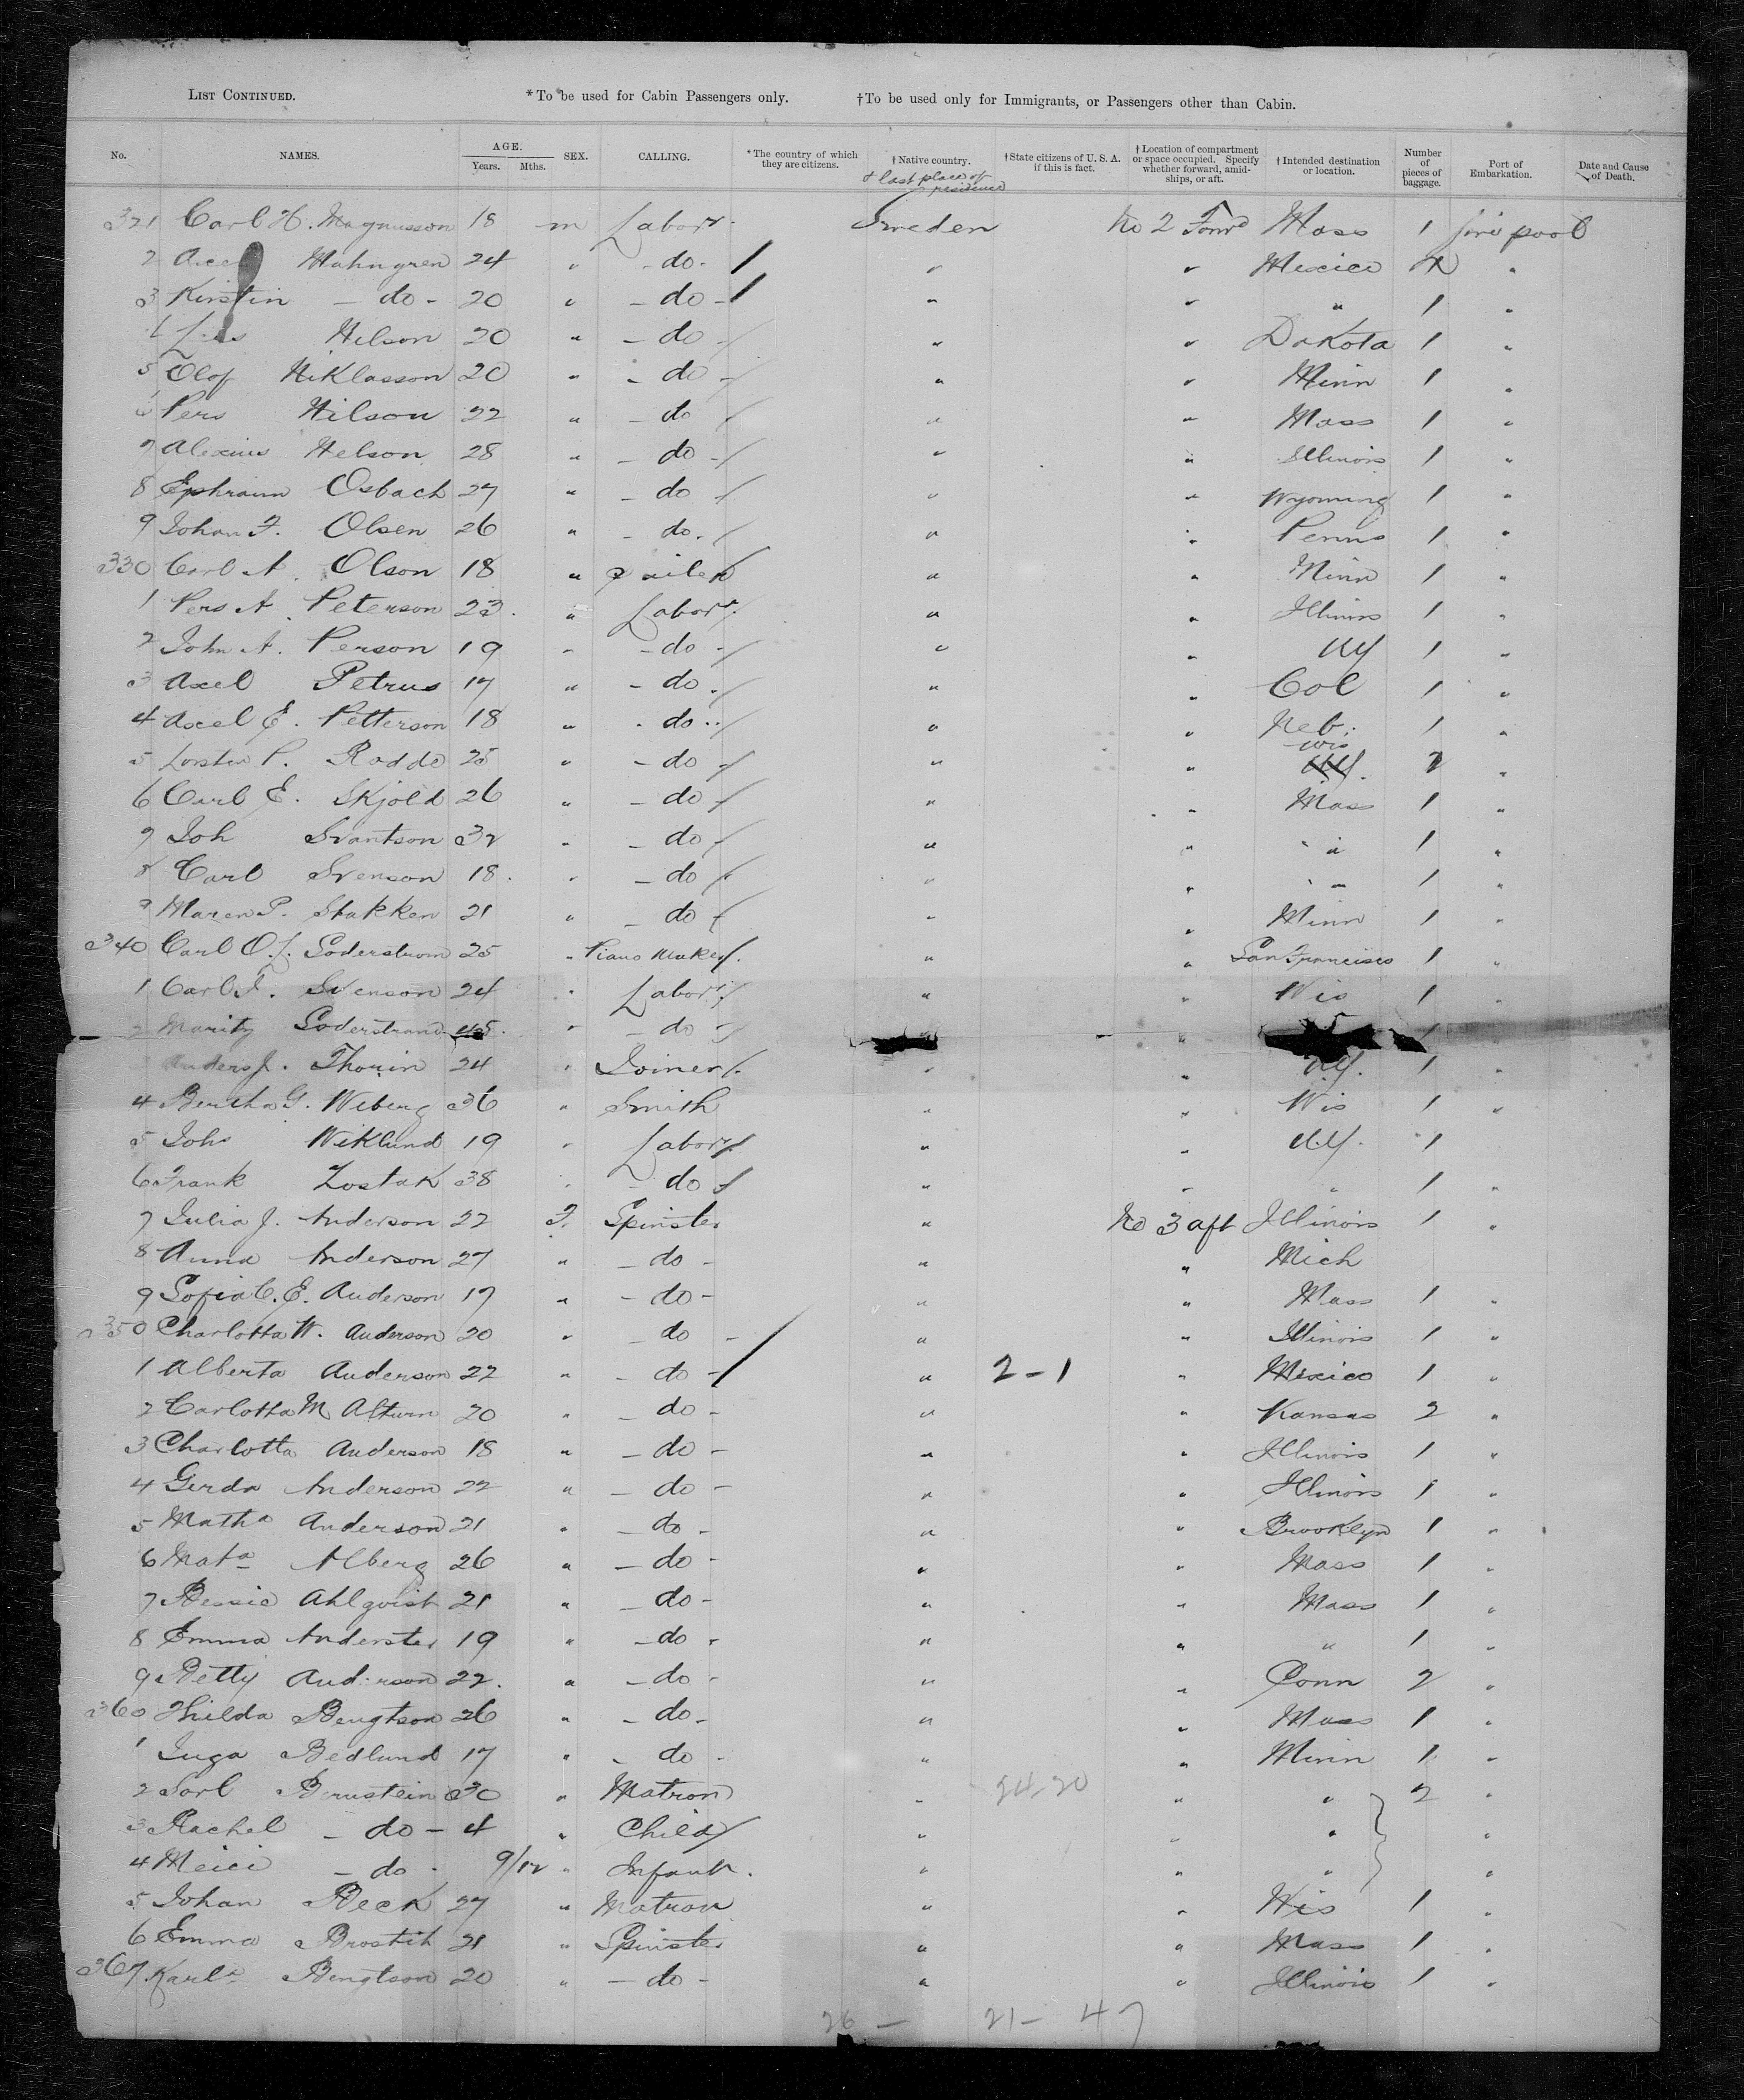 LIST CONTINUED. *To be used for Cabin Passengers only. †To be used only for Immigrants, or Passengers other than Cabin.
No. NAMES. AGE. Years. Mths. SEX. CALLING. *The country of which they are citizens. †Native country. & last place of residence †State citizens of U. S. A. if this is fact. †Location of compartment or space occupied. Specify whether forward, amidships, or aft. †Intended destination or location. Number of pieces of baggage. Port of Embarkation. Date and Cause of Death.
321 Carl H. Magnusson 18 m Labor Sweden No 2 Forwd Mass 1 Liverpool
2 Axel Mahngren 24 " - do - / " " Mexico "
3 Kirstin - do - 20 " - do - / " " " 1 "
4 Nilson 20 " - do - " " Dakota 1 "
5 Olof Niklasson 20 " - do - " " Minn 1 "
6 Pers Nilson 22 " - do " " Mass 1 "
7 Alexius Nelson 28 " - do - " " Illinois 1 "
8 Ephraim Osbach 27 " - do " " Wyoming 1 "
9 Johan F. Olsen 26 " - do. " " Penns 1 "
330 Carl A. Olson 18 " " " Minn 1 "
1 Pers A. Peterson 23. " Labor " " Illinois 1 "
2 John A. Person 19 " - do - " " NY 1 "
3 Axel Petrus 17 " - do. " " Col 1 "
4 Axel E. Petterson 18 " - do - " " Neb. 1 "
5 P. Roddo 25 " - do - " " Wis NY. 2 "
6 Carl E. Skjold 26 " - do - " " Mass 1 "
7 Joh Svantson 32 " - do - " " " 1 "
8 Carl Svenson 18. " - do " " " 1 "
9 Maren P. Stakken 21 " - do - " " Minn 1 "
340 Carl O. L. Soderstrom 25 " Piano Maker. " " San Francisco 1 "
1 Carl J. Svenson 24 " Labor " " Wis 1 "
2 Soderstrand 45. " - do - " 1
Anders J. Thorin 24 " Joiner. " " NY. 1 "
4 Bertha G. Weberg 36 " Smith " " Wis 1 "
5 Joh Wiklund 19 " Labor " " NY. 1
6 Frank Zostak 38 " - do " " " 1 "
7 Julia J. Anderson 22 F. Spinster " No 3 aft Illinois 1 "
8 Anna Anderson 27 " - do - " " Mich
9 Sofia C. E. Anderson 17 " - do - " " Mass 1 "
350 Charlotta W. Anderson 20 " - do - " " Illinois 1 "
1 Alberta Anderson 22 " - do - / " 2-1 " Mexico 1 "
2 Carlotta M Alturn 20 " - do - " " Kansas 2 "
3 Charlotta Anderson 18 " - do - " " Illinois 1 "
4 Gerda Anderson 22 " - do - " " Illinois 1 "
5 Matha Anderson 21 " - do - " " Brooklyn 1 "
6 Mata Alberg 26 " - do - " " Mass 1 "
7 Bessie Ahlqvist 21 " - do - " " Mass 1 "
8 Emma Anderster 19 " - do - " " " 1 "
9 Betty Anderson 22. " - do - " " Conn 2 "
360 Hulda Bengtson 26 " - do - " " Mass 1 "
1 Inga Bedlund 17 " - do - " " Minn 1 "
2 Sorl Bernstein 30 " Matron " 24-20 " " 2 "
3 Rachel - do - 4 " Child " " " "
4 Meici - do - 9/12 " Infant. " " " "
5 Johan Beck 27 " Matron " " Wis 1 "
6 Emma Brostit 21 " Spinster " " Mass 1 "
367 Karla Bengtson 20 " - do - " " Illinois 1 "
26 - 21 - 47